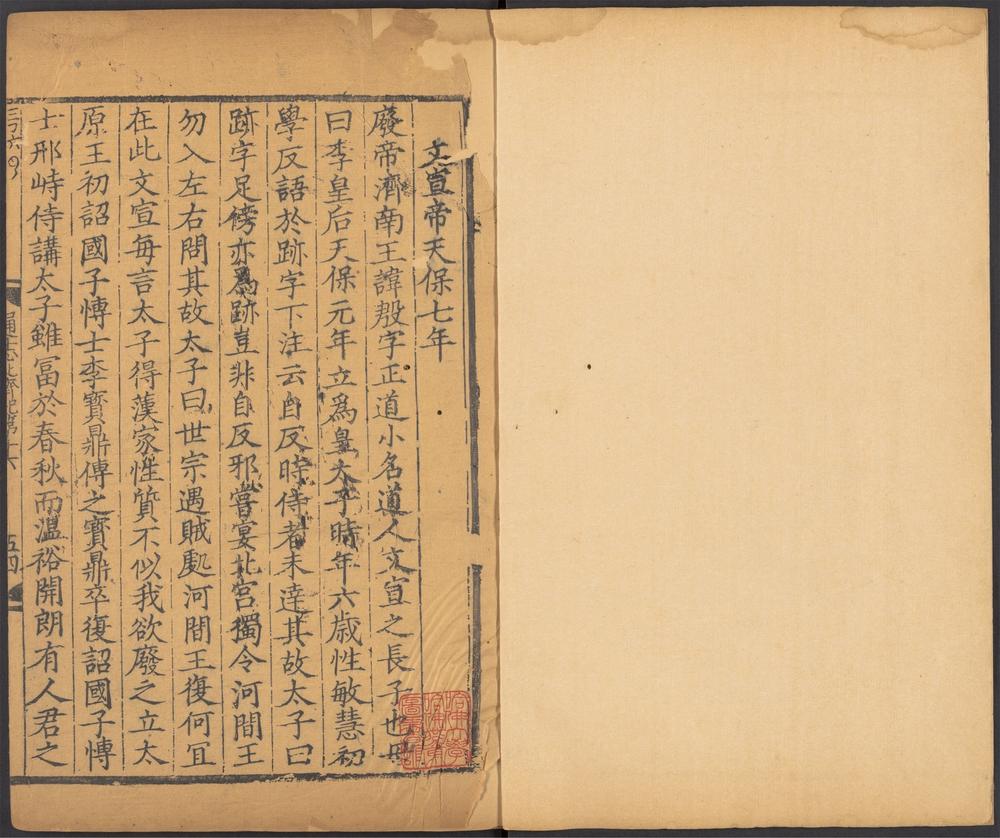 文宣帝天保七年
廢帝濟南王諱殷字正道小名道人文宣之長子也母
曰李皇后天保元年立爲皇太子時年六歲性敏慧初
學反語於跡字下注云自反時侍者未達其故太子曰
跡字足傍亦爲跡豈非自反邪嘗宴北宮獨令河間王
勿入左右問其故太子曰世宗遇賊處河間王復何宜
在此文宣每言太子得漢家性質不似我欲廢之立太
原王初詔國子博士李寳鼎傳之寳鼎卒復詔國子博
士邢峙侍講太子雖冨於春秋而温裕開朗有人君之
五四